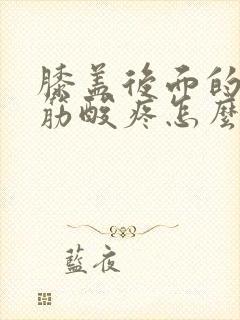 膝盖後面的
筋酸疼怎麼
藍夜